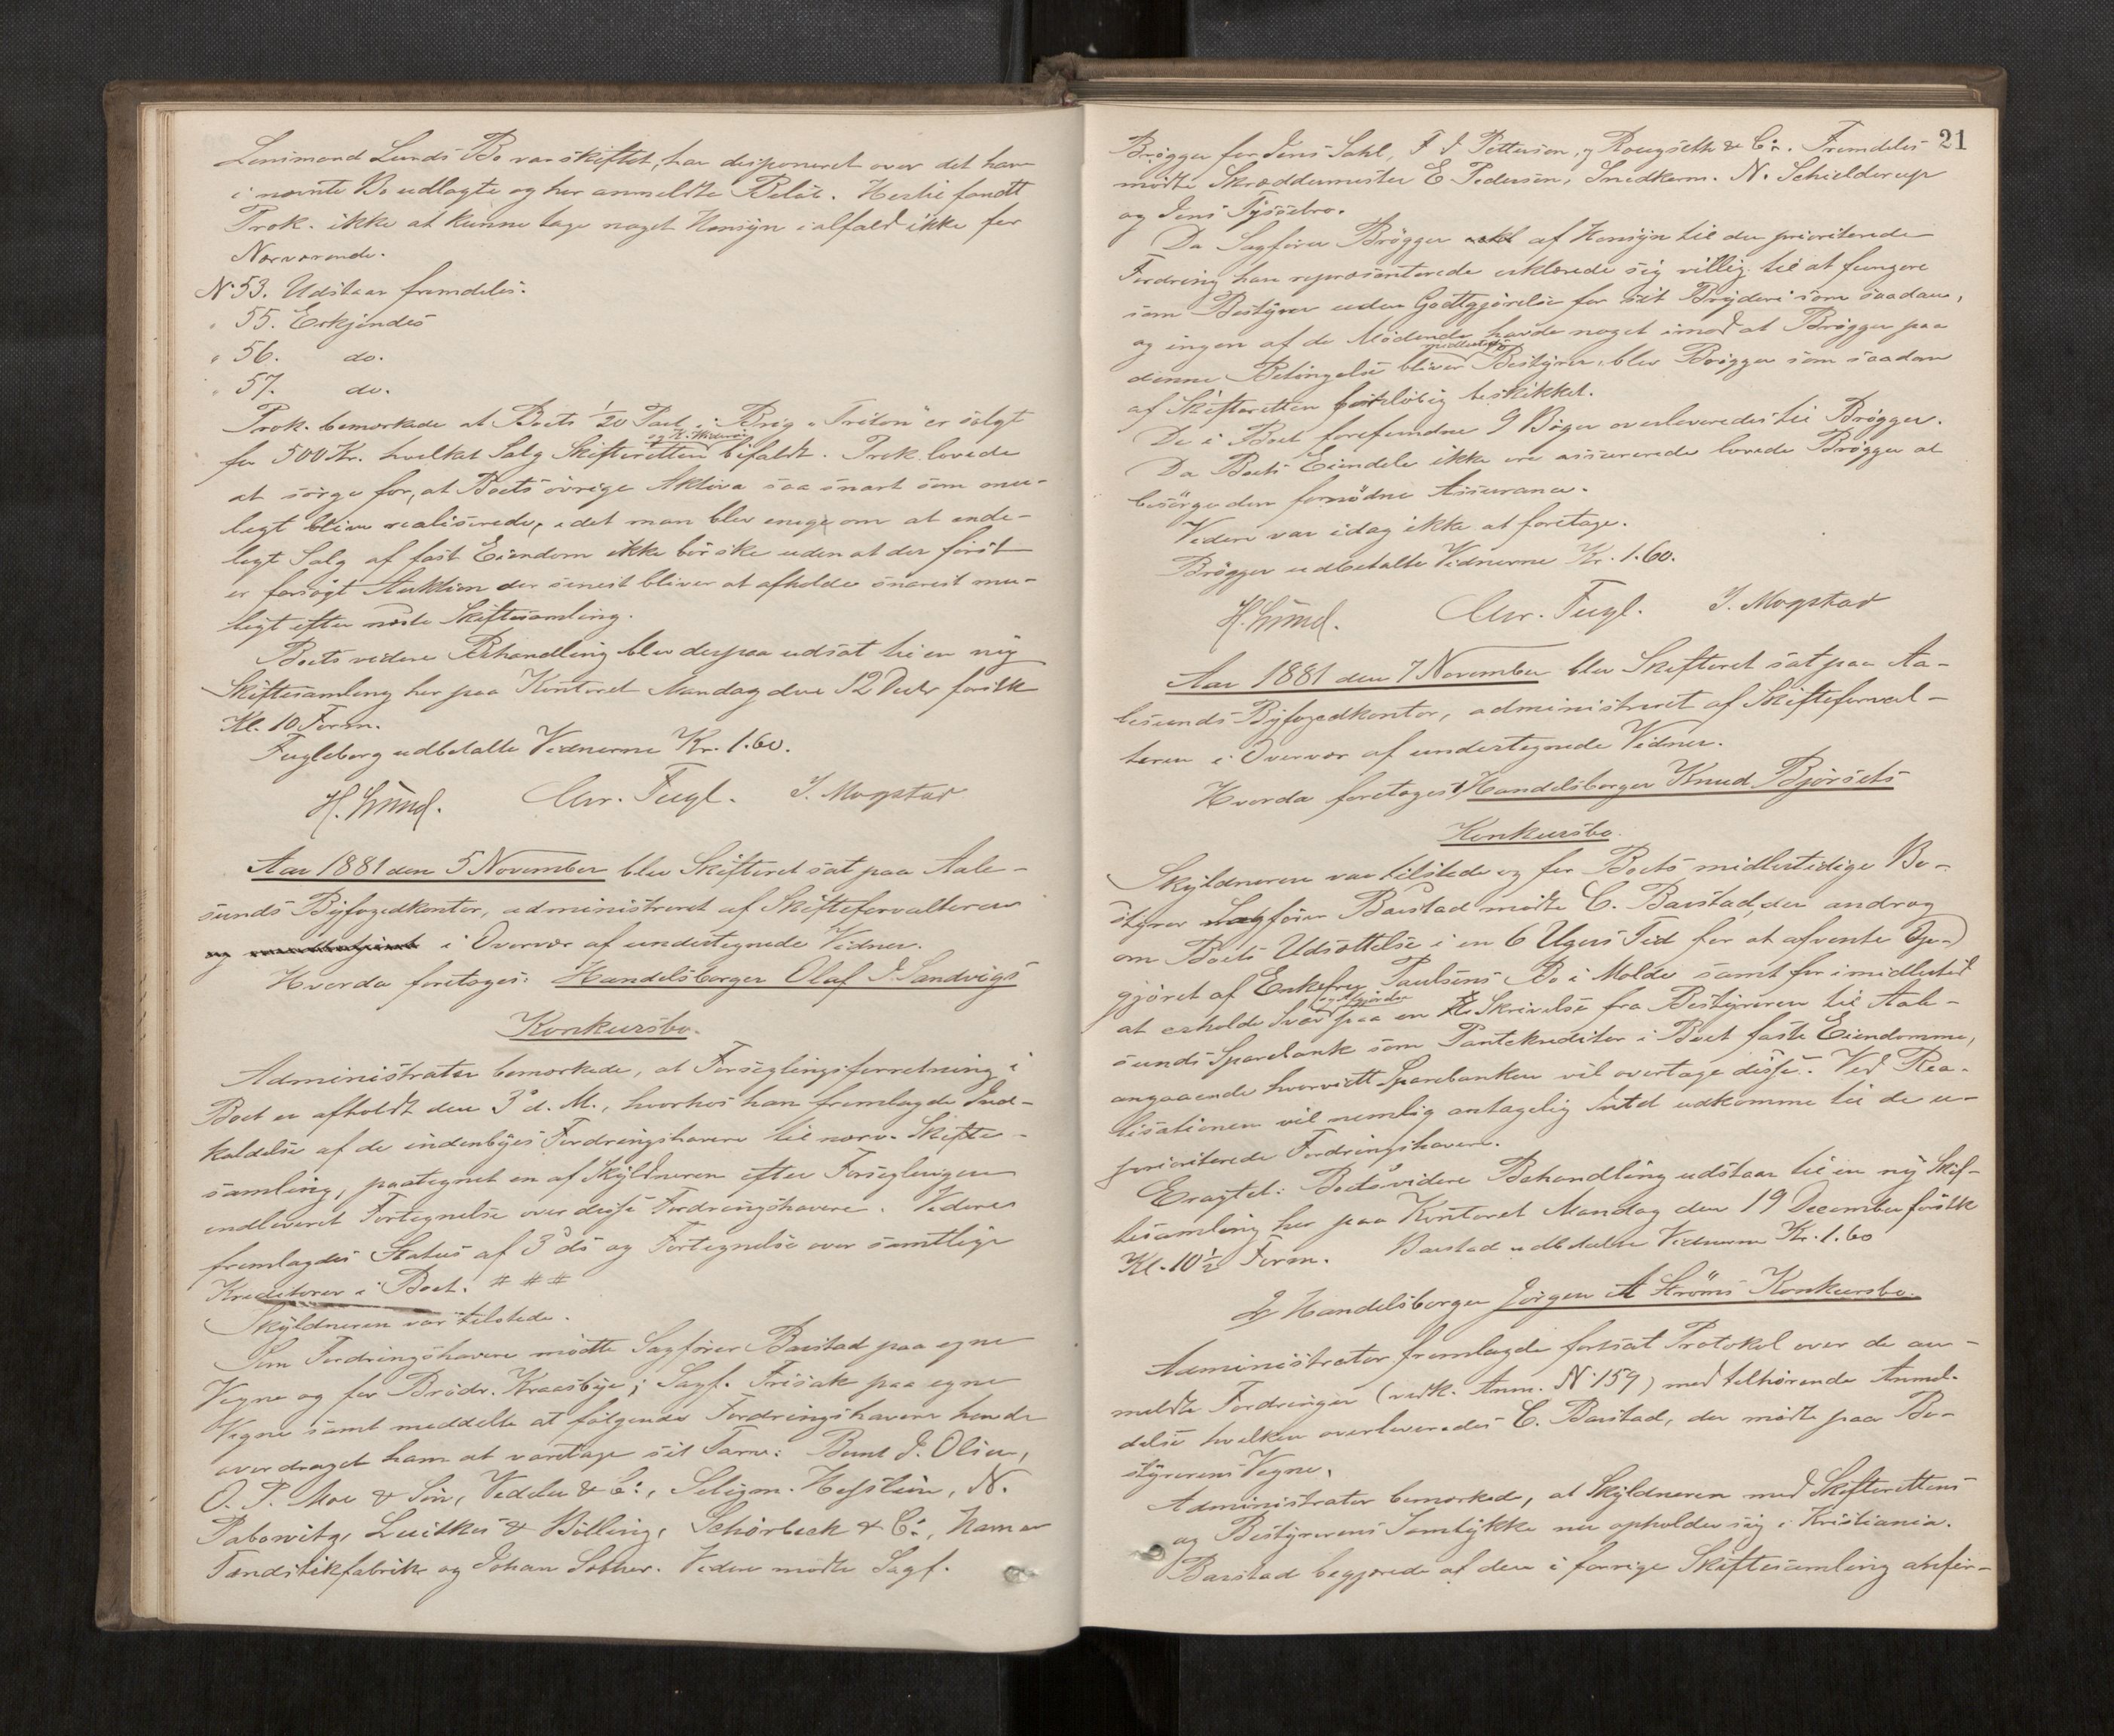 Lensmand Lunds Bo var skiftet, har disponeret over det ham
i nævnte Bo udlagte og her anmeldte Beløb. Hertil fandt
Prok. ikke at kunne tage noget Hensyn ialfald ikke for
Nærværende.
N. 53. Udstaar fremdeles.
" 55. Erkjendes
" 56. do.
" 57. do.
Prok. bemærkede at Boets 1/20 Part i Brig "Triton" er solgt
for 500 Kr. hvilket Salg Skifteretten bifaldt. Prok. lovede
at sørge for, at Boets øvrige Aktiva saa snart som mu-
ligt blive realiserede, idet man blev enige om at ende-
ligt Salg af fast Eiendom ikke bør ske uden at der først
er forsøgt Auktion der senest bliver at afholde snarest mu-
ligt efter næste Skiftesamling.
Boets videre Behandling blev derpaa udsat til en ny
Skiftesamling her paa Kontoret Mandag den 12 Decbr førstk
Kl. 10 Form.
Fugleberg udbetalte Vidnerne Kr. 1.60.
H. Lund. Chr. Fugl. J. Mogstad
Aar 1881 den 5 November blev Skifteret sat paa Aale-
sunds Byfogedkontor, administreret af Skifteforvalteren
i Overvær af undertegnede Vidner.
Hvorda foretoges: Handelsborger Olaf J. Sandvigs
Konkursbo.
Administrator bemærkede, at Forseglingsforretning i
Boet er afholdt den 3 d. M., hvorhos han fremlagde Ind-
kaldelse af de indenbyes Fordringshavere til nærv. Skifte-
samling, paategnet en af Skyldneren efter Forseglingen
indleveret Fortegnelse over disse Fordringshavere. Videre
fremlagdes Status af 3 ds og Fortegnelse over samtlige
Kreditorer i Boet. # # #
Skyldneren var tilstede.
Som Fordringshavere mødte Sagfører Barstad paa egne
Vegne og for Brødr. Kraasbye; Sagf. Frisak paa egne
Vegne samt meddelte at følgende Fordringshavere havde
overdraget ham at varetage sit Tarv: Bernt J. Olsen,
O. P. Moe & Søn, Vedeler & Co., Seligm. Hesslein, N.
Pabowitz, Luitkes & Bølling, Schørbeck & Co., Hamar
Tændstikfabrik og Johan Sother. Videre mødte Sagf.
21
Brøgger for Jens Sahl, F. J. Petterson, og Rougseth & Co. Fremdeles
mødte Skræddermester E Pedersen, Snedkerm. N. Schielderup
og Jens Tyssebro.
Da Sagfører Brøgger af Hensyn til den prioriterede
Fordring han repræsenterede erklærede sig villig til at fungere
som Bestyrer uden Godtgjørelse for sit Bryderi som saadan,
og ingen af de Mødende havde noget imod at Brøgger paa
midlertidig
denne Betingelse bliver Bestyrer, blev Brøgger som saadan
af Skifteretten foreløbig beskikket.
De i Boet forefundne 9 Bøger overleveredes til Brøgger.
Da Boets Eiendele ikke ere assurerede lovede Brøgger at
besørge den fornødne Assurance.
Videre var idag ikke at foretage.
Brøgger udbetalte Vidnerne Kr. 1.60.
H. Lund. Chr. Fugl. J. Mogstad
Aar 1881 den 7 November blev Skifteret sat paa Aa-
lesunds Byfogedkontor, administreret af Skifteforval-
teren i Overvær af undertegnede Vidner.
Hvorda foretoges 1, Handelsborger Knud Bjørsets
Konkursbo.
Skyldneren var tilstede og for Boets midlertidige Be-
styrer Sagfører Barstad mødte C. Barstad, der androg
om Boets Udsættelse i en 6 Ugers Tid for at afvente Op-
gjøret af Enkefru Paulsens Bo i Molde samt for imidlertid
at erholde Svar paa en Skrivelse fra Bestyreren til Aale-
sunds Sparebank som Pantekreditor i Boet faste Eiendomme,
angaaende hvorvidt Sparebanken vil overtage disse. Ved Rea-
lisationen vil nemlig antagelig Intet udkomme til de u-
prioriterede Fordringshavere.
Eragtet: Boets videre Behandling udstaar til en ny Skif-
tesamling her paa Kontoret Mandag den 19 December førstk
Kl. 10 1/2 Form. Barstad udbetalte Vidnerne Kr. 1.60
2, Handelsborger Jørgen A Strøms Konkursbo.
Administrator fremlagde fortsat Protokol over de an-
meldte Fordringer (vedk. Anm. N. 159) med tilhørende Anmel-
delse hvilken overleveredes C. Barstad, der mødte paa Be-
styrerens Vegne.
Administrator bemærkede, at Skyldneren med Skifterettens
og Bestyrerens Samtykke nu opholder sig i Kristiania.
Barstad begjærede af den i forrige Skiftesamling anfør-